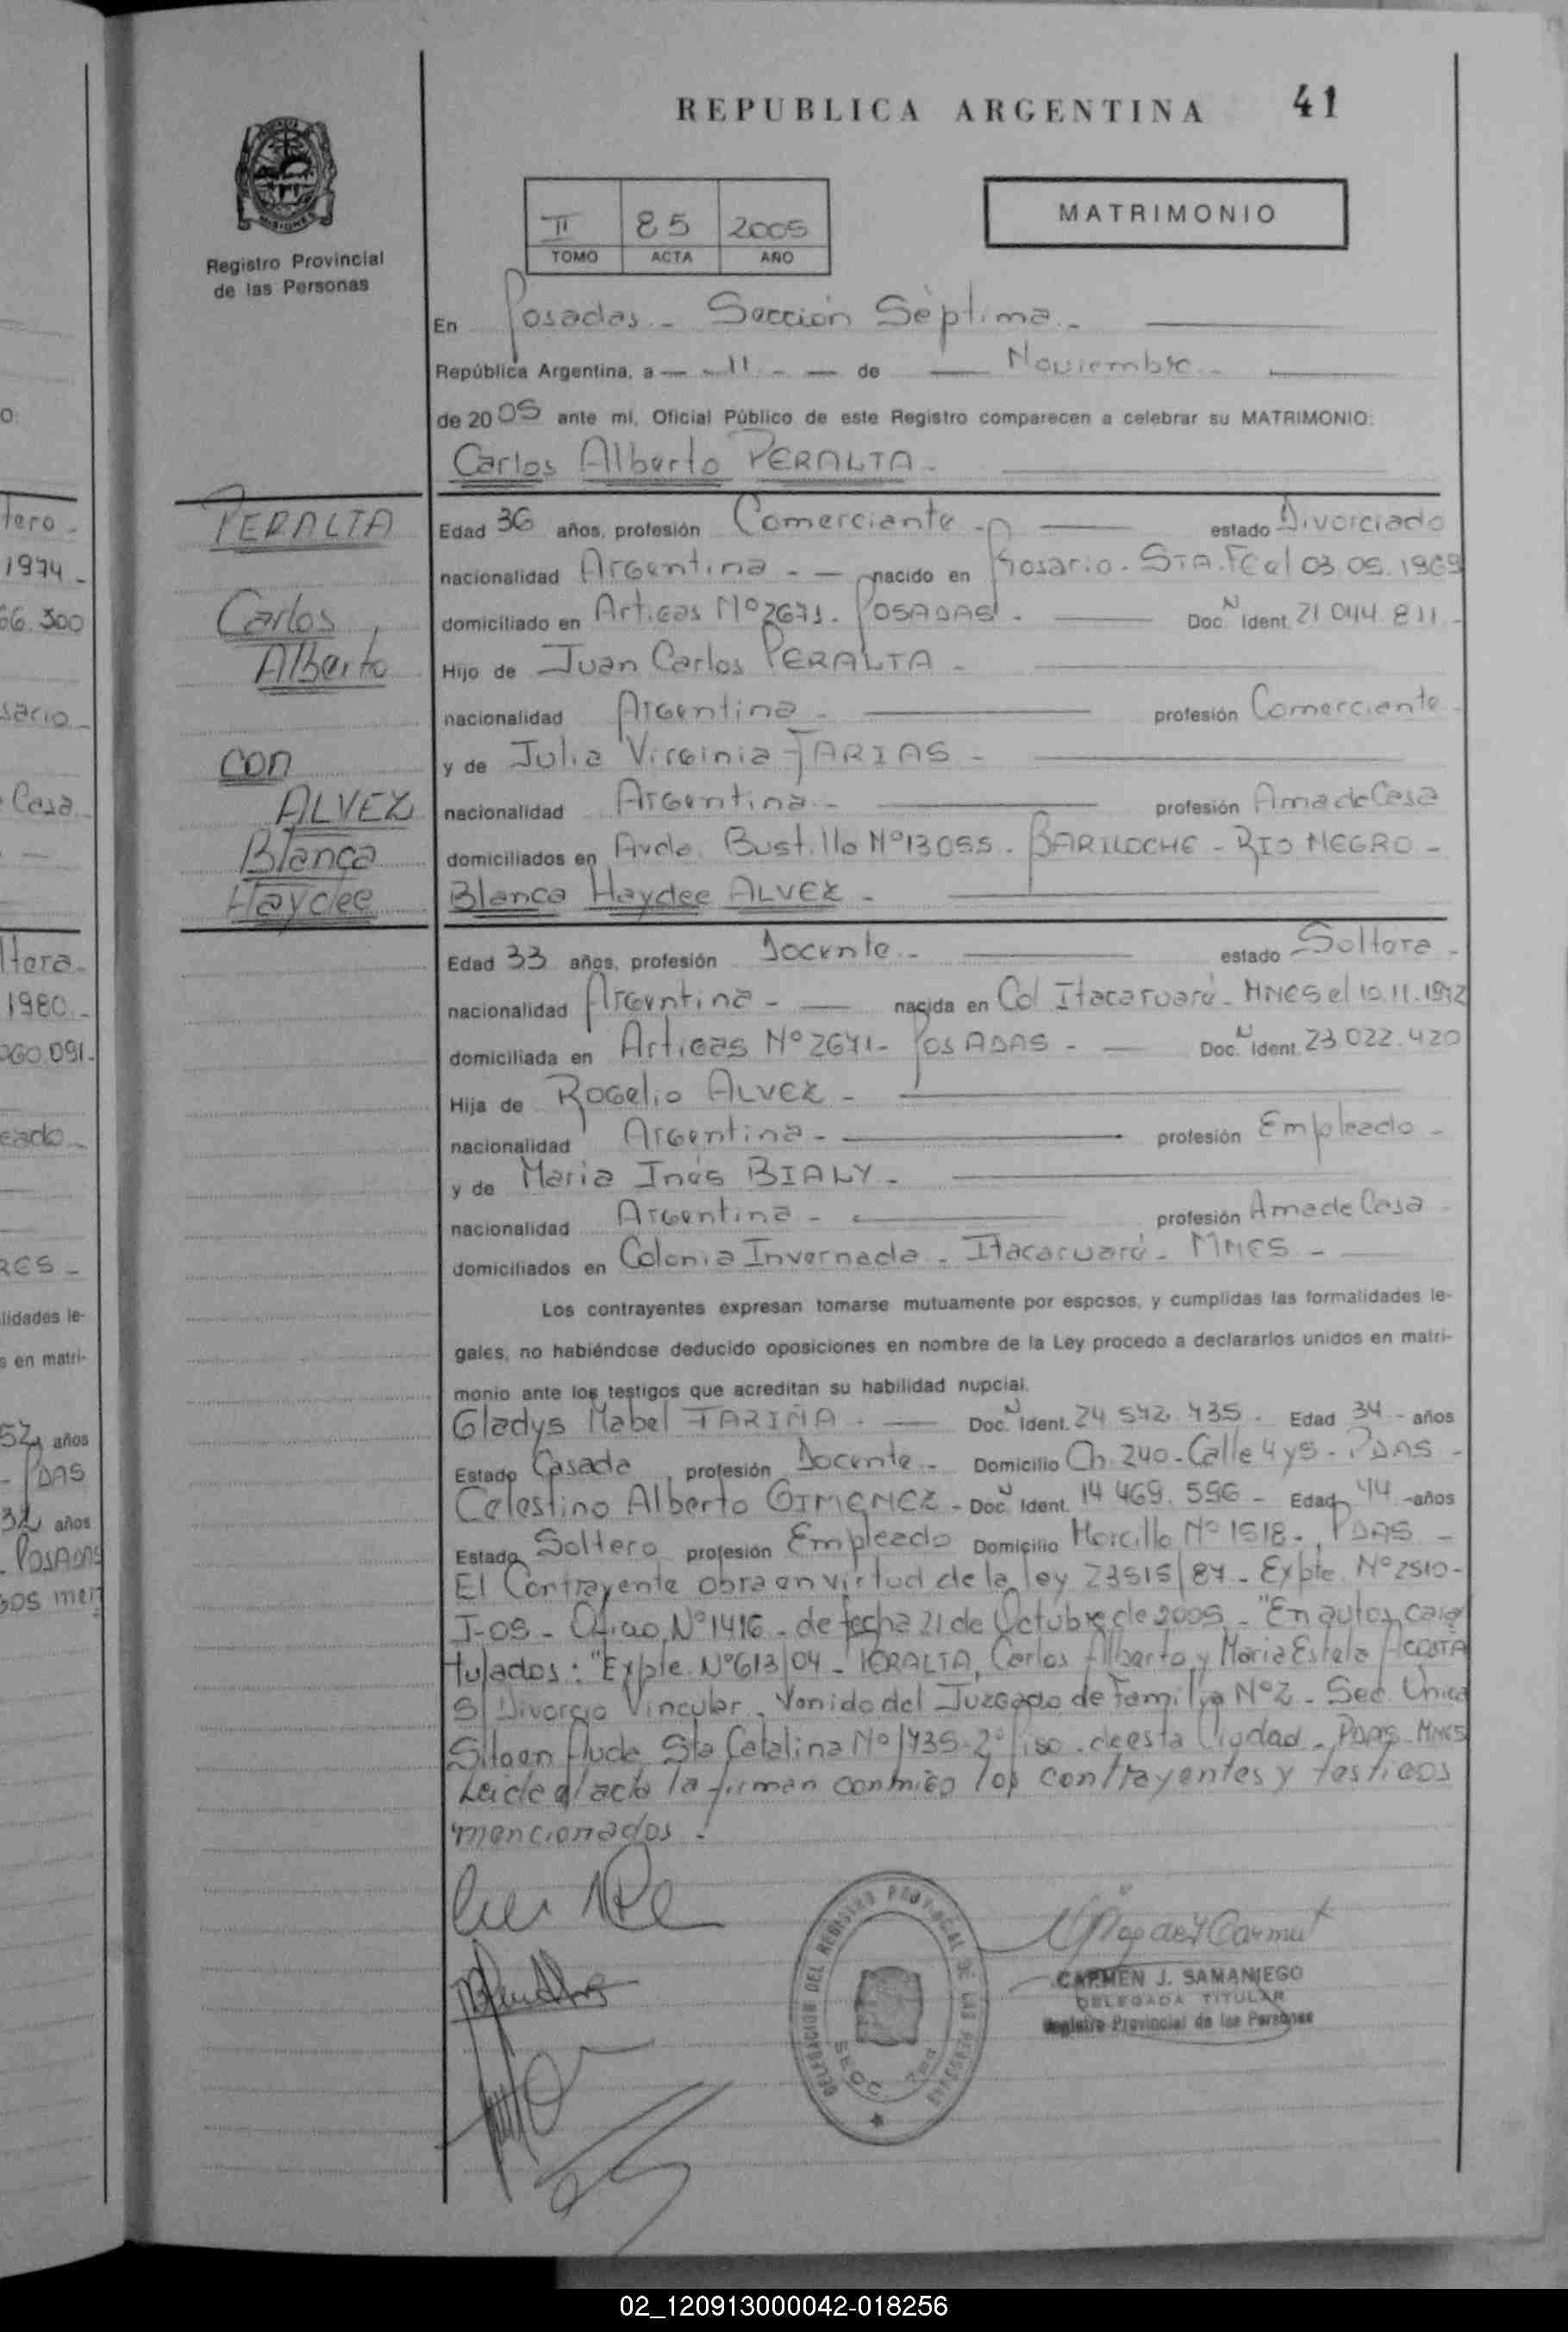 REPUBLICA ARGENTINA 41
MISIONES
Registro Provincial
de las Personas
II 85 2005
TOMO ACTA AÑO
MATRIMONIO
En Posadas - Sección Séptima -
República Argentina, a - 11 - de Noviembre -
de 2005 ante mí, Oficial Público de este Registro comparecen a celebrar su MATRIMONIO:
Carlos Alberto PERALTA -
PERALTA
Carlos
Alberto
con
ALVEZ
Blanca
Haydee
Edad 36 años, profesión Comerciante - estado Divorciado
nacionalidad Argentina - nacido en Rosario - STA. FE el 03.05.1969
domiciliado en Artigas Nº 2671 - POSADAS - Doc. N Ident. 21 044 811 -
Hijo de Juan Carlos PERALTA -
nacionalidad Argentina - profesión Comerciante -
y de Julia Virginia FARIAS -
nacionalidad Argentina - profesión Ama de Casa
domiciliados en Avda. Bustillo Nº 13055 - BARILOCHE - RIO NEGRO -
Blanca Haydee ALVEZ -
Edad 33 años, profesión Docente - estado Soltera -
nacionalidad Argentina - nacida en Col Itacaruaré - MNES el 10.11.1972
domiciliada en Artigas Nº 2671 - POSADAS - Doc. N Ident. 23 022.420
Hija de Rogelio ALVEZ -
nacionalidad Argentina - profesión Empleado -
y de Maria Inés BIALY -
nacionalidad Argentina - profesión Ama de Casa -
domiciliados en Colonia Invernada - Itacaruaré - MNES -
Los contrayentes expresan tomarse mutuamente por esposos, y cumplidas las formalidades le-
gales, no habiéndose deducido oposiciones en nombre de la Ley procedo a declararlos unidos en matri-
monio ante los testigos que acreditan su habilidad nupcial.
Gladys Mabel FARIÑA - Doc. N Ident. 24 542 435 - Edad 34 - años
Estado Casada, profesión Docente - Domicilio Ch. 240 - Calle 4 y 5 - PDAS -
Celestino Alberto GIMENEZ - Doc. N Ident. 14 469. 596 - Edad 44 - años
Estado Soltero profesión Empleado Domicilio Morcillo Nº 1518 -, PDAS -
El Contrayente obra en virtud de la ley 23515/87 - Expte. Nº 2510 -
J-05 - Oficio Nº 1416 - de fecha 21 de Octubre de 2005 - "En autos cara
tulados: "Expte. Nº 613/04 - PERALTA, Carlos Alberto y Maria Estela ACOSTA
S/ Divorcio Vincular. Venido del Juzgado de Familia Nº 2 - Sec. Única
Sito en Avda Sta Catalina Nº 1735 - 2º Piso - de esta Ciudad - Pdas. MNES
Leida el acta la firman conmigo los contrayentes y testigos
mencionados -
DELEGACION DEL REGISTRO PROVINCIAL DE LAS PERSONAS
SECC. 7ma
CARMEN J. SAMANIEGO
DELEGADA TITULAR
Registro Provincial de las Personas
tero -
1974 -
66.300
sario -
Casa -
ltera -
1980 -
260.091 -
eado -
RES -
lidades le-
s en matri-
años
PDAS
32 años
- POSADAS
gos men
02_120913000042-018256